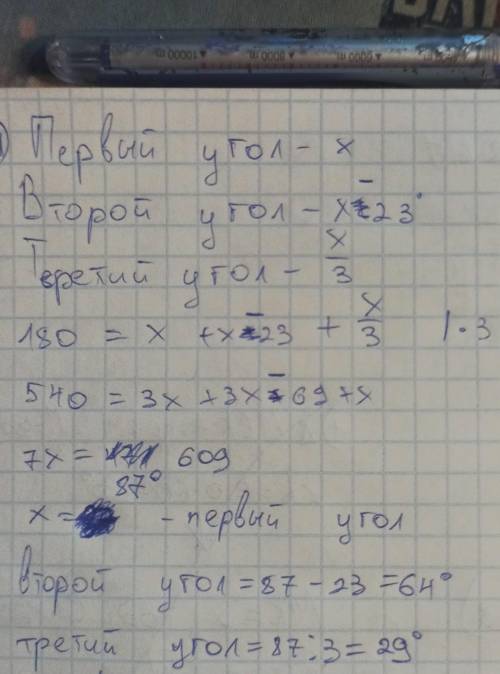 Первый угол - x
Второй угол - x - 23°
Третий угол - x/3
180 = x + x - 23 + x/3 | · 3
540 = 3x + 3x - 69 + x
7x = 609
x = 87° - первый угол
второй угол = 87 - 23 = 64°
третий угол = 87 : 3 = 29°